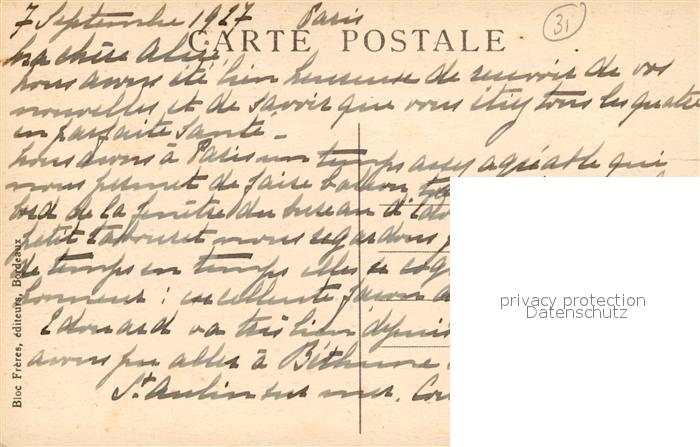 7 Septembre 1927 Paris
31
CARTE POSTALE
Ma chère Alice,
nous avons été bien heureuse de recevoir de vos
nouvelles et de savoir que vous étiez tous les quatre
en parfaite santé.
nous avons à Paris un temps assez agréable qui
nous permet de faire
bord de la fenêtre du bureau d'
petit tabouret nous regardons
de temps en temps elles se
honneur : excellente façon
Edouard va très bien depuis
avons pu aller à Béthune
St Aubin sur mer.
Bloc Frères, éditeurs, Bordeaux
privacy protection
Datenschutz